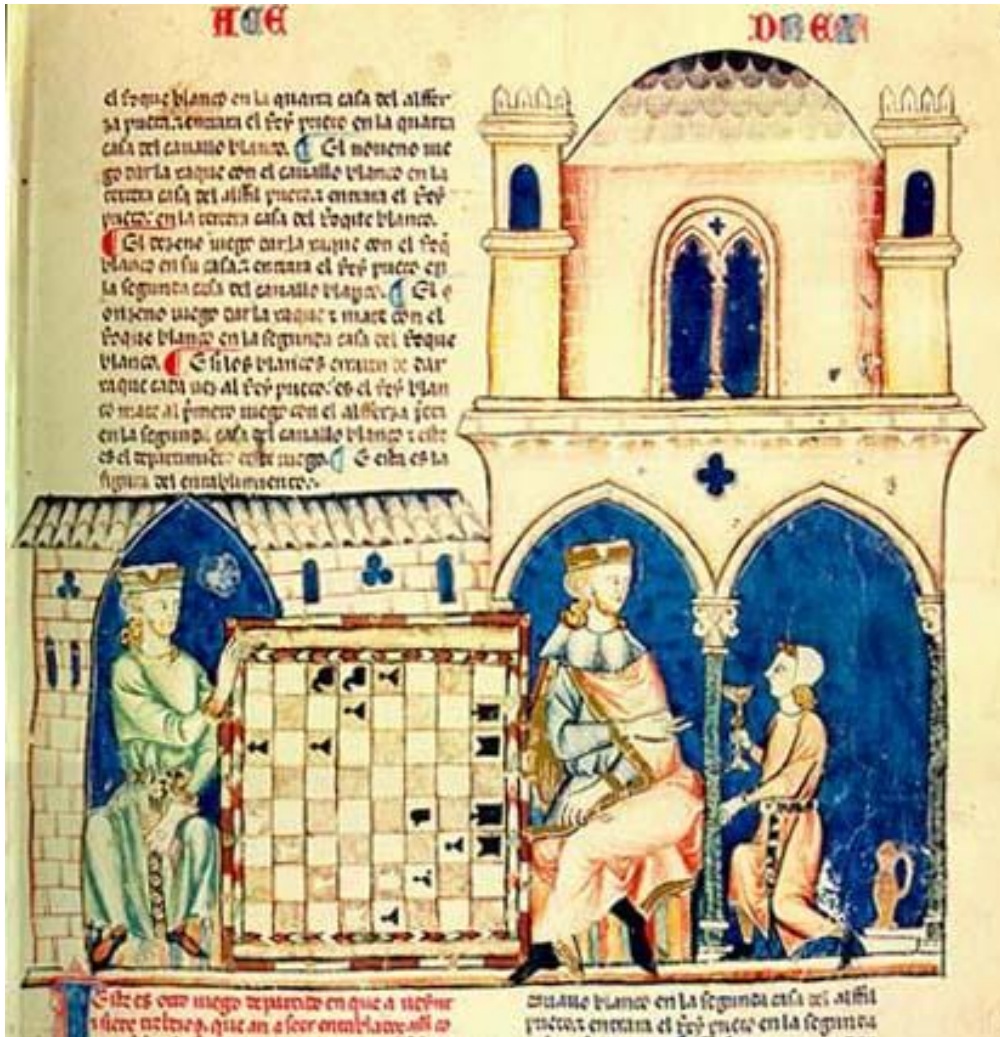 ACE
DREX
el roque blanco en la quarta casa del alffer
za prieta. z entrara el Rey prieto en la quarta
casa del cauallo blanco. ¶ El noueno iue
go dar la xaque con el cauallo blanco en la
tercera casa del alffil prieto. z entrara el Rey
prieto. en la tercera casa del Roque blanco.
¶ El dezeno iuego dar la xaque con el roq̃
blanco en su casa. z entrara el Rey prieto en
la segunda casa del cauallo blanco. ¶ El
onzeno iuego dar la xaque z mate con el
roque blanco en la segunda casa del Roque
blanco. ¶ E si los blancos erraren de dar
xaque cada uez al Rey prieto. es el Rey blan
co mate al p̃mero iuego con el alfferza
en la segunda casa del cauallo blanco z este
es el departimiẽto deste iuego. ¶ E esta es la
figura del entablamiento.
Este es otro iuego departido en que a ueynte
z siete trebeios. que an a seer entablados assi co
cauallo blanco en la segunda casa del alffil
prieto. z entrara el Rey prieto en la segunda